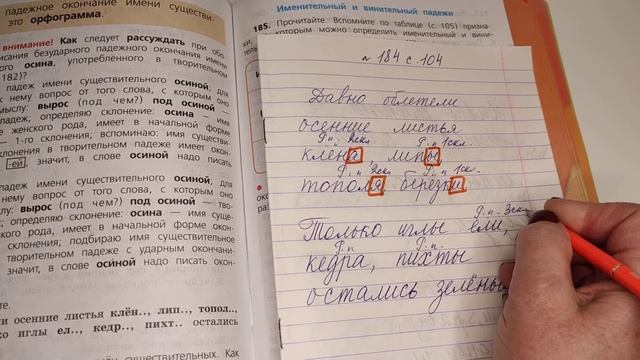 падежное окончание имени существи-
это орфограмма.
внимание! Как следует рассуждать при обо-
писания безударного падежного окончания имени
осина, употреблённого в творительном
182)?
падеж имени существительного осиной, для
к нему вопрос от того слова, с которым оно
смыслу: вырос (под чем?) под осиной
падеж; определяю склонение: осина — имя
женского рода, имеет в начальной форме
— 1-го склонения; вспоминаю: имя существи-
склонения в творительном падеже имеет окон-
-ей, значит, в слове осиной надо писать
падеж имени существительного осиной, для
к нему вопрос от того слова, с которым оно
смыслу: вырос (под чем?) под осиной — тво-
определяю склонение: осина — имя суще-
рода, имеет в начальной форме окон-
склонения; подбираю имя существительное
творительном падеже с ударным окончани-
значит, в слове осиной надо писать окон-
осенние листья клён.., лип.., топол..,
иглы ел.., кедр.., пихт.. остались
существительных. Как
Именительный и винительный падежи
185. Прочитайте. Вспомните по таблице (с. 105) призна-
которым можно определить именительный и вини-
№ 184 с. 104
Давно облетели
осенние листья
Р.п. 2скл. Р.п. 1скл.
клёна, липы,
Р.п. 2скл. Р.п. 1скл.
тополя, берёзки.
Р.п. 3скл.
Только иглы ели,
Р.п. Р.п.
кедра, пихты
остались зелёны